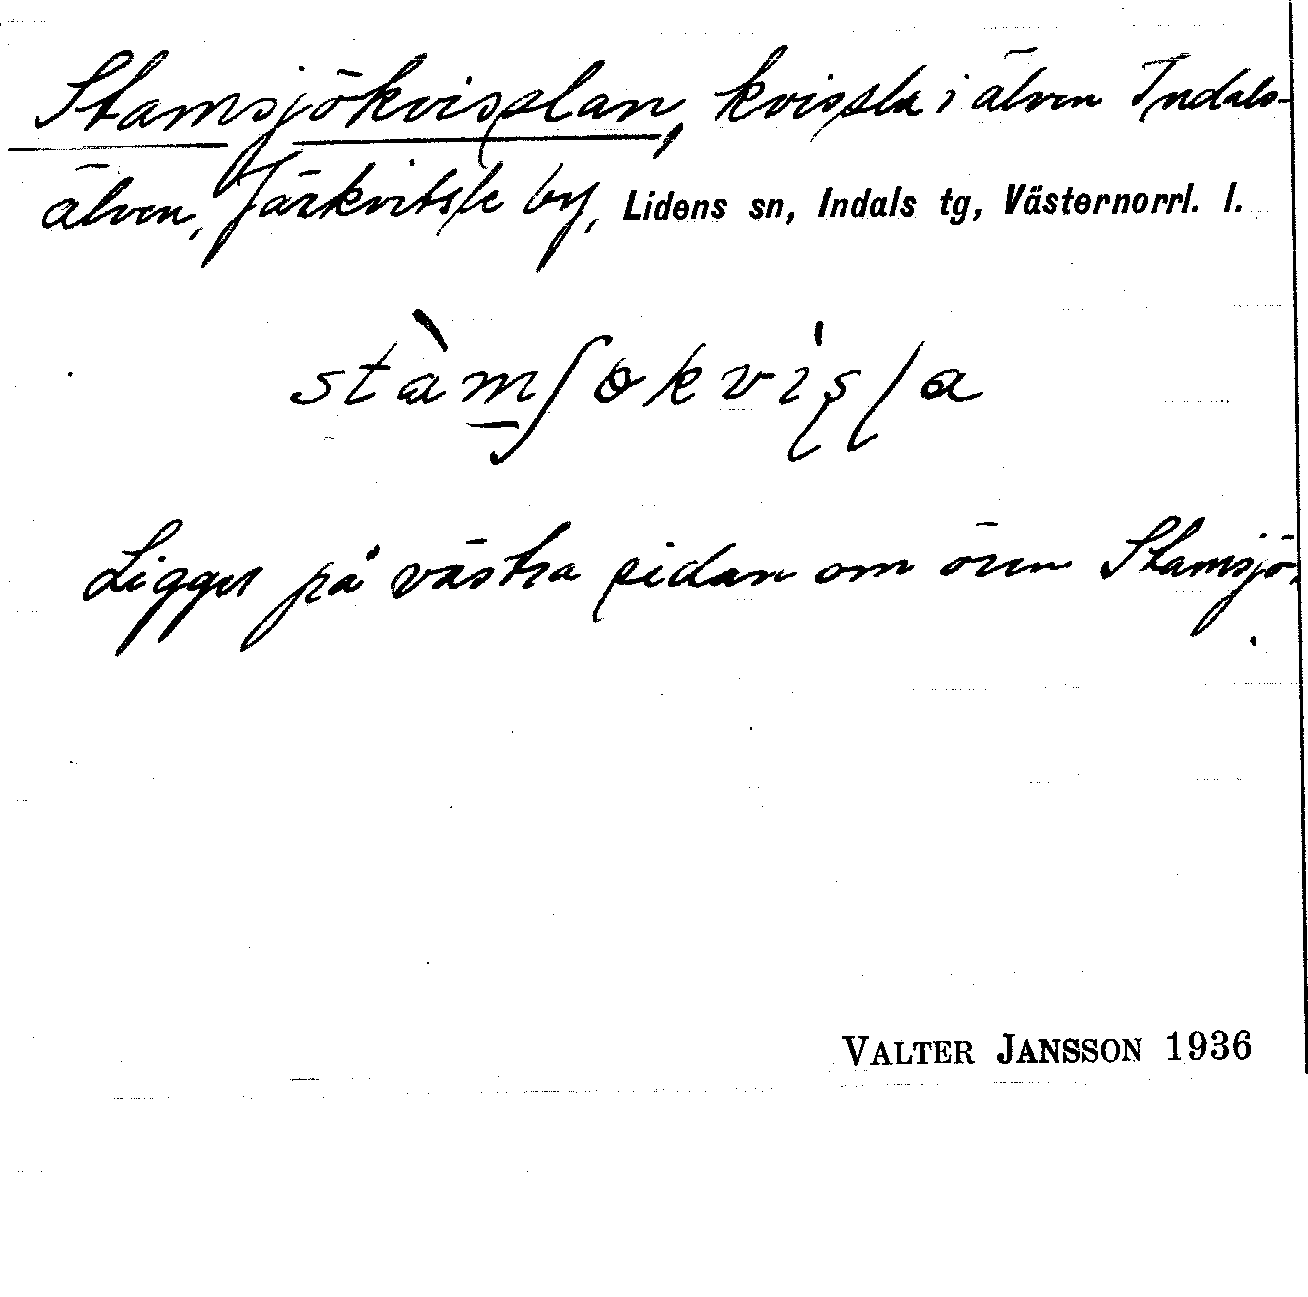 Stamsjökvisslan, kvissla i älven Indals-
älven, Järkvitsle by, Lidens sn, Indals tg, Västernorrl. l.
stàmʃokvisla
Ligger på västra sidan om ören Stamsjö.
VALTER JANSSON 1936